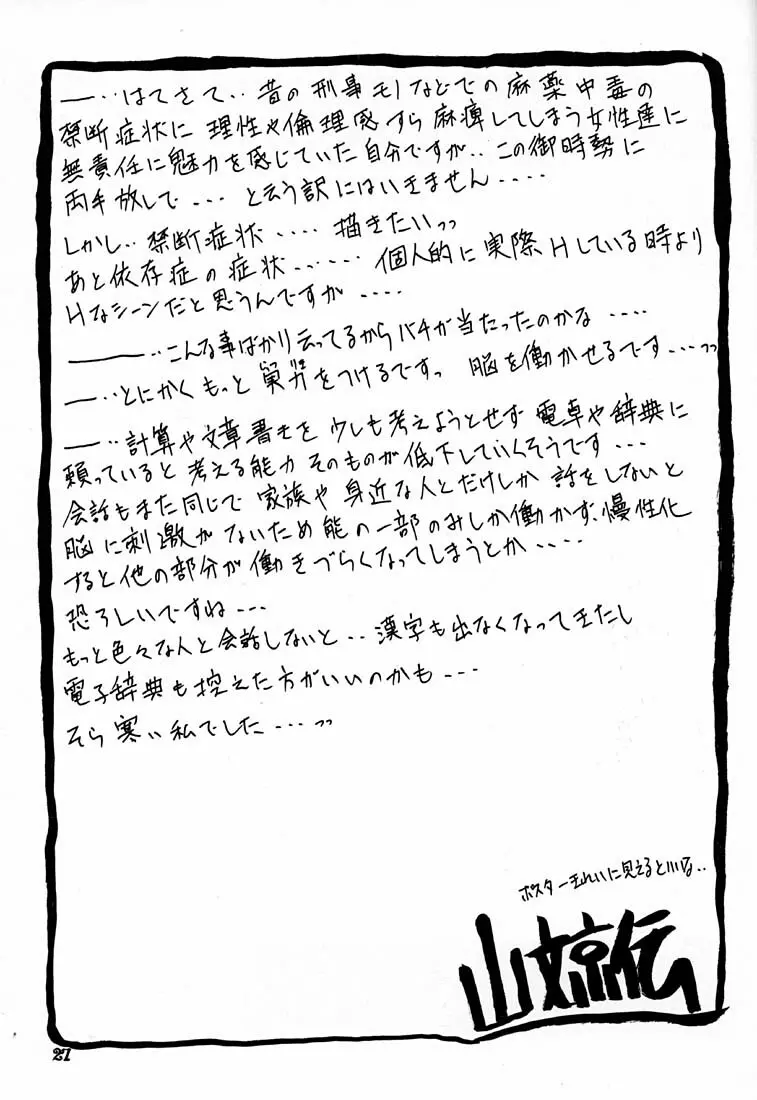 ――‥はてさて‥昔の刑事モノなどでの麻薬中毒の
禁断症状に理性や倫理感すら麻痺してしまう女性達に
無責任に魅力を感じていた自分ですが‥この御時勢に
両手放しで・・・と云う訳にはいきません・・・・
しかし‥禁断症状・・・・描きたいッッ
あと依存症の症状・・・・・・個人的に実際Hしている時より
Hなシーンだと思うんですが・・・・
―――‥こんな事ばかり云ってるからバチが当たったのかな・・・・
――‥とにかくもっと をつけるですっ 脳を働かせるです・・・ッッ
――‥計算や文章書きを少しも考えようとせず電卓や辞典に
頼っていると考える能力そのものが低下していくそうです・・・
会話もまた同じで家族や身近な人とだけしか話をしないと
脳に刺激がないため能の一部のみしか働かず、慢性化
すると他の部分が働きづらくなってしまうとか・・・・
恐ろしいですね・・・
もっと色々な人と会話しないと‥漢字も出なくなってきたし
電子辞典も控えた方がいいのかも・・・
そら寒い私でした・・・ッッ
ポスターきれいに見えるといいな‥
山文京伝
27